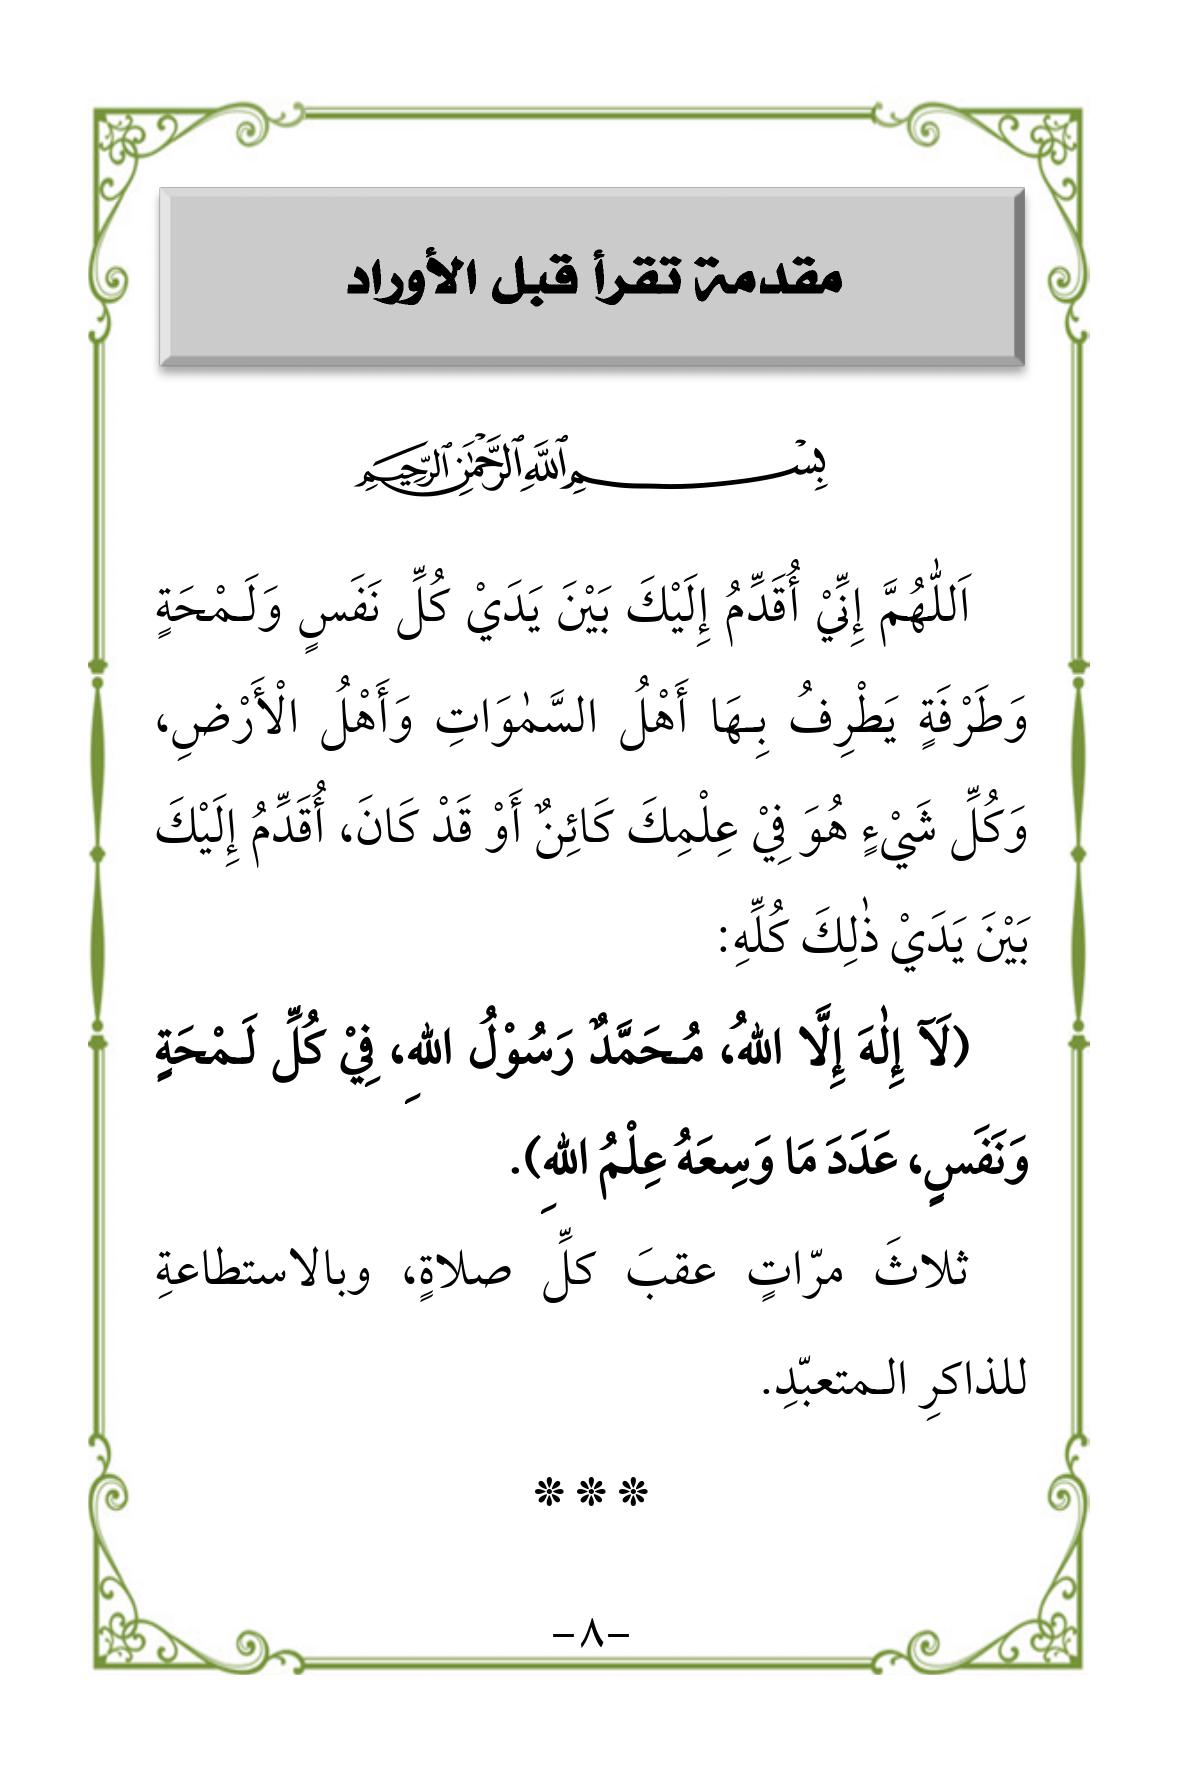 مقدمة تقرأ قبل الأوراد
بِسْمِ ٱللَّهِ ٱلرَّحْمَٰنِ ٱلرَّحِيمِ
اَللّٰهُمَّ إِنِّيْ أُقَدِّمُ إِلَيْكَ بَيْنَ يَدَيْ كُلِّ نَفَسٍ وَلَـمْحَةٍ
وَطَرْفَةٍ يَطْرِفُ بِـهَا أَهْلُ السَّمٰوَاتِ وَأَهْلُ الْأَرْضِ،
وَكُلِّ شَيْءٍ هُوَ فِيْ عِلْمِكَ كَائِنٌ أَوْ قَدْ كَانَ، أُقَدِّمُ إِلَيْكَ
بَيْنَ يَدَيْ ذٰلِكَ كُلِّهِ:
(لَآ إِلٰهَ إِلَّا اللهُ، مُـحَمَّدٌ رَسُوْلُ اللهِ، فِيْ كُلِّ لَـمْحَةٍ
وَنَفَسٍ، عَدَدَ مَا وَسِعَهُ عِلْمُ اللهِ).
ثلاثَ مرّاتٍ عقبَ كلِّ صلاةٍ، وبالاستطاعةِ
للذاكرِ الـمتعبّدِ.
❊ ❊ ❊
–٨–